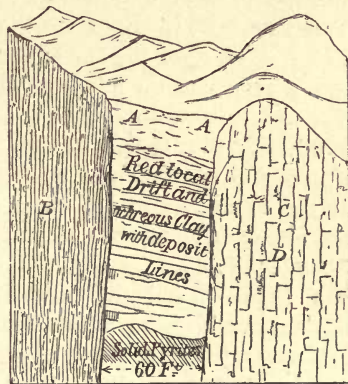 A A
Red local
Drift and
Ochreous Clay
with deposit
Lines
B
C
D
Solid Pyrites
60 Ft